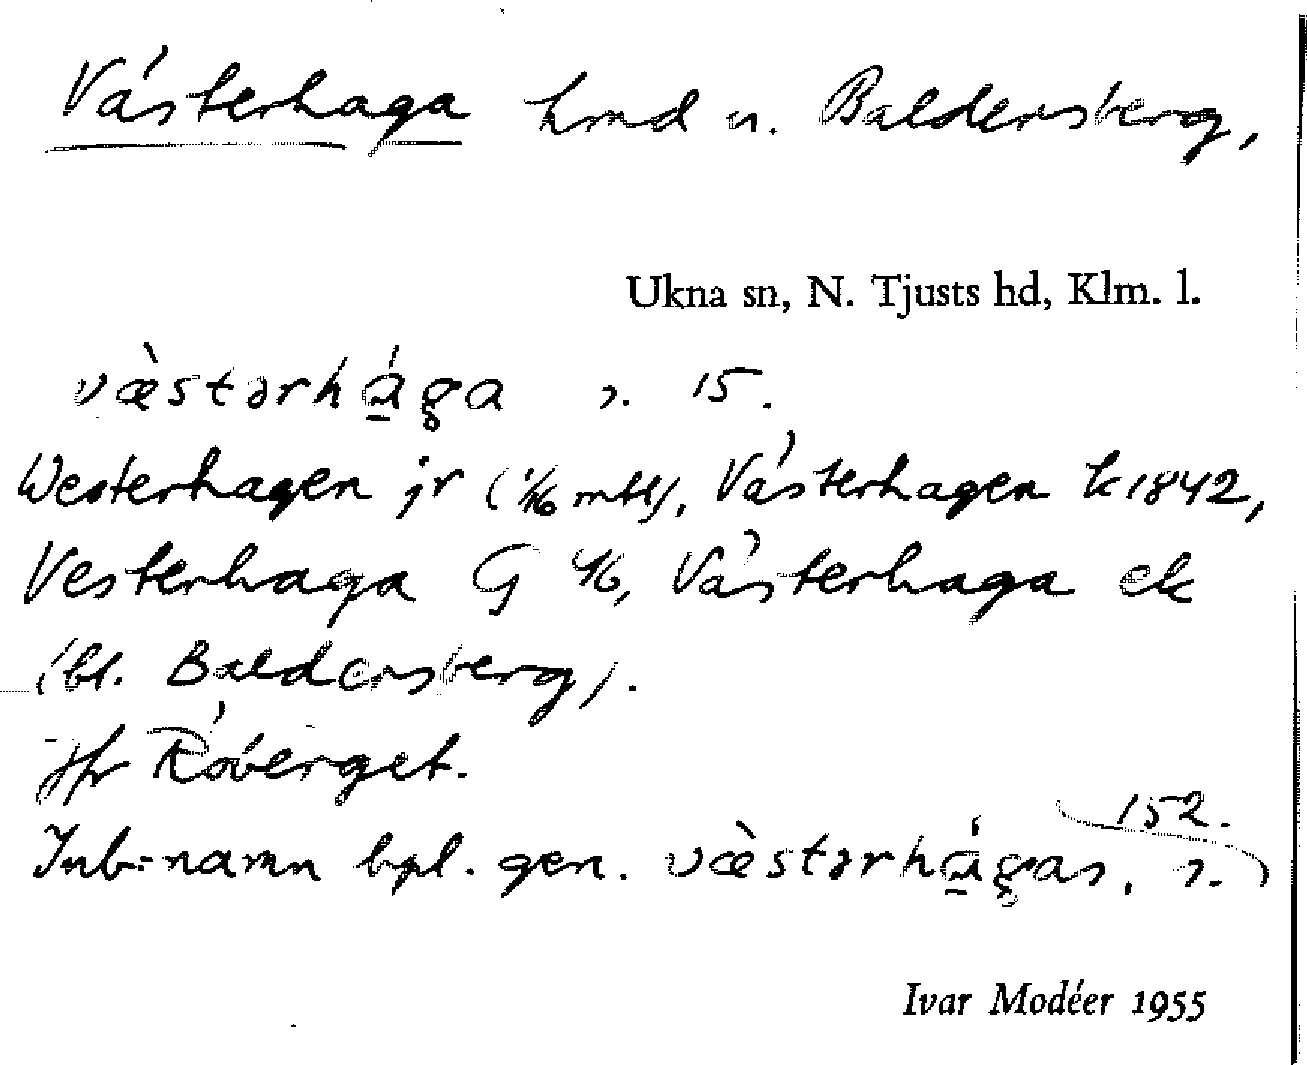 Västerhaga hmd u. Baldersberg,
Ukna sn, N. Tjusts hd, Klm. l.
væ̀stərhága s. 15.
Westerhagen jr (1/16 mtl), Västerhagen k 1842,
Vesterhaga G 4/6, Västerhaga ek
(bl. Baldersberg).
Jfr Röberget.
152.
Inb:namn bpl. gen. væ̀stərhágas, s.
Ivar Modéer 1955